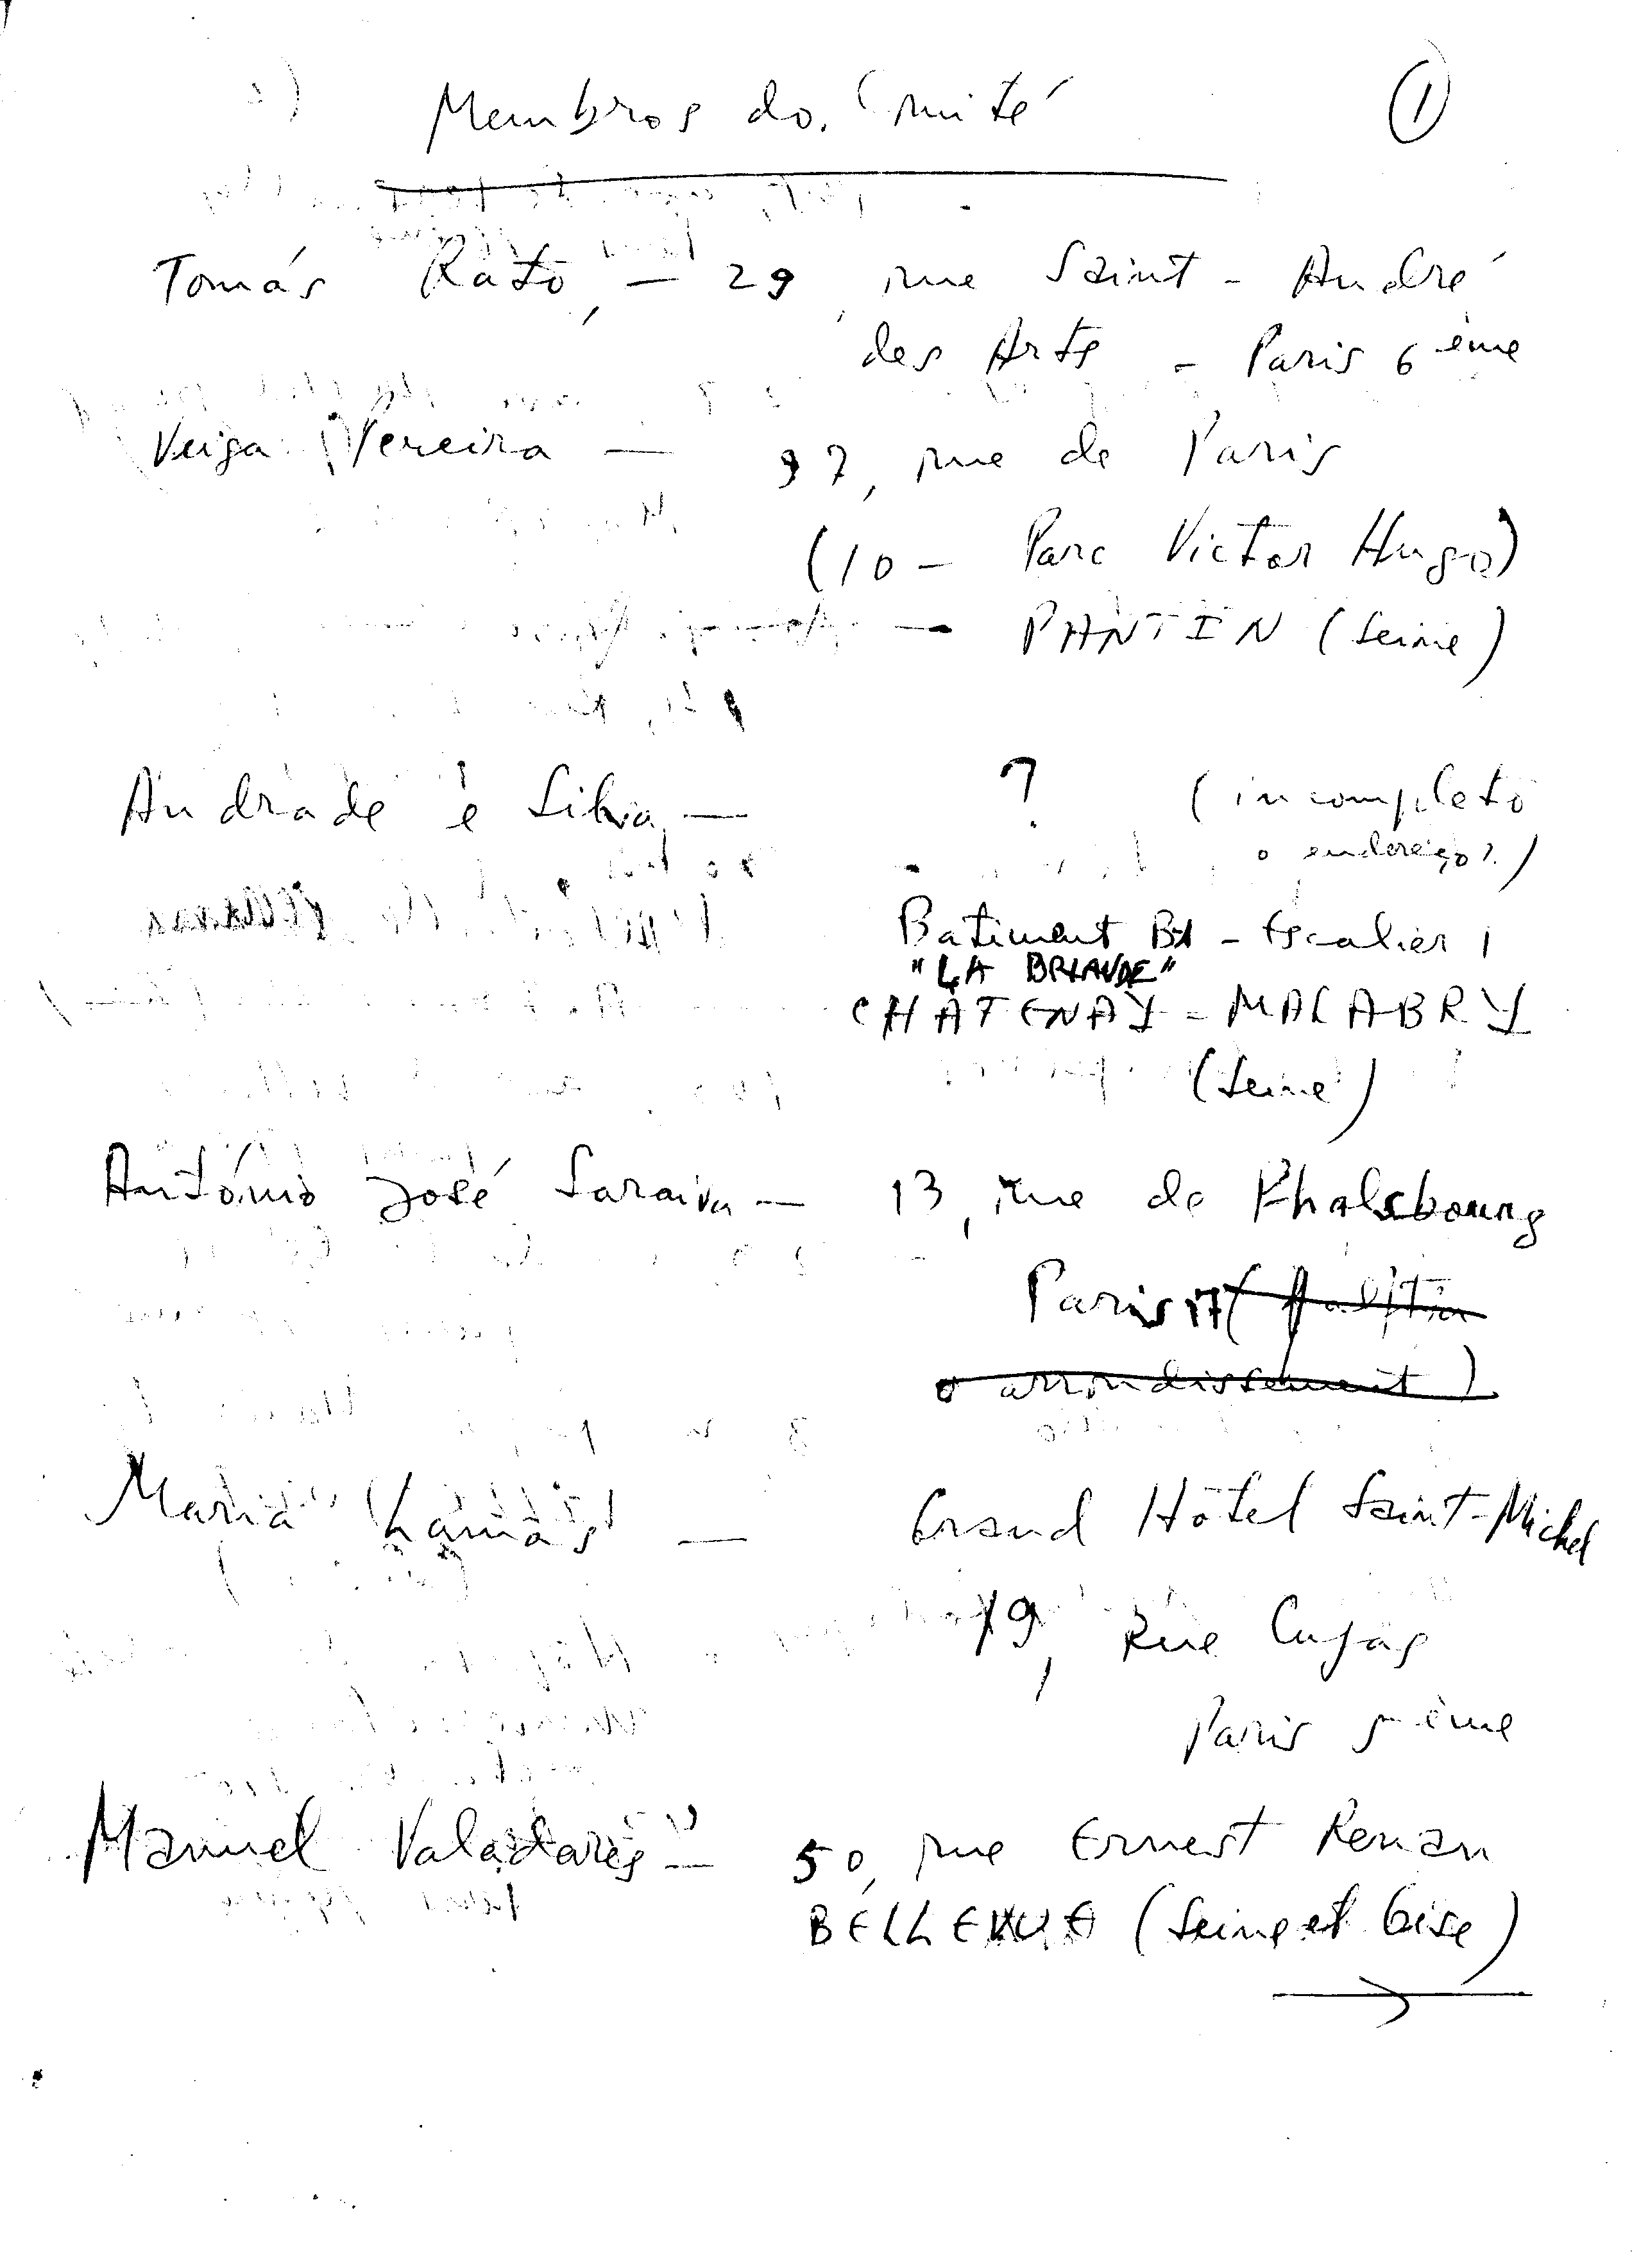 Membros do Comité
1
Tomás Rato, — 29, rue Saint - André
des Arts - Paris 6ème
Veiga Pereira — 97, rue de Paris
(10 - Parc Victor Hugo)
— PANTIN (Seine)
Andrade e Silva — ? (incompleto
o endereço?)
Batiment B1 - Escalier 1
"LA BRIAUDE"
CHATENAY - MALABRY
(Seine)
António José Saraiva — 13, rue de Phalsbourg
Paris 17 (falta
o arrondissement)
Maria Lamas — Grand Hôtel Saint-Michel
19, Rue Cujas
Paris 5ème
Manuel Valadares — 50, rue Ernest Renan
BELLEVUE (Seine et Oise)